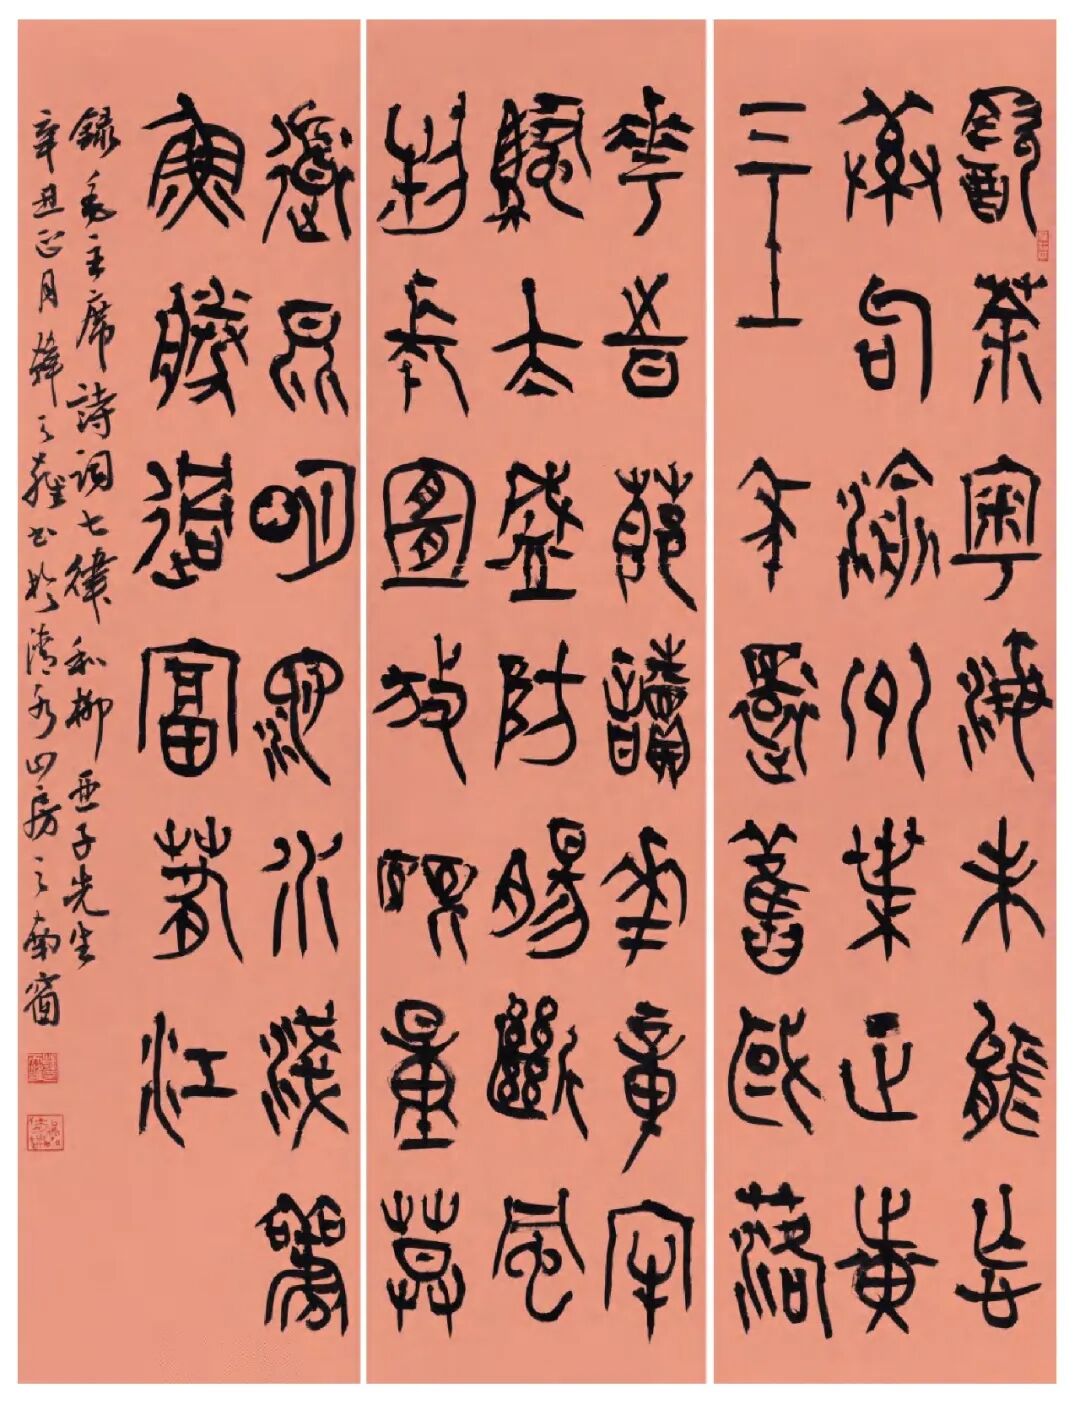 飲茶粵海未能忘
索句渝州葉正黃
三十一年還舊國落
華時節讀華章牢
騷太盛防腸斷風
物長宜放眼量莫
道昆明池水淺觀
魚勝過富春江
錄毛主席詩詞七律和柳亞子先生
辛丑正月韓天雍書於清水山房之南窗